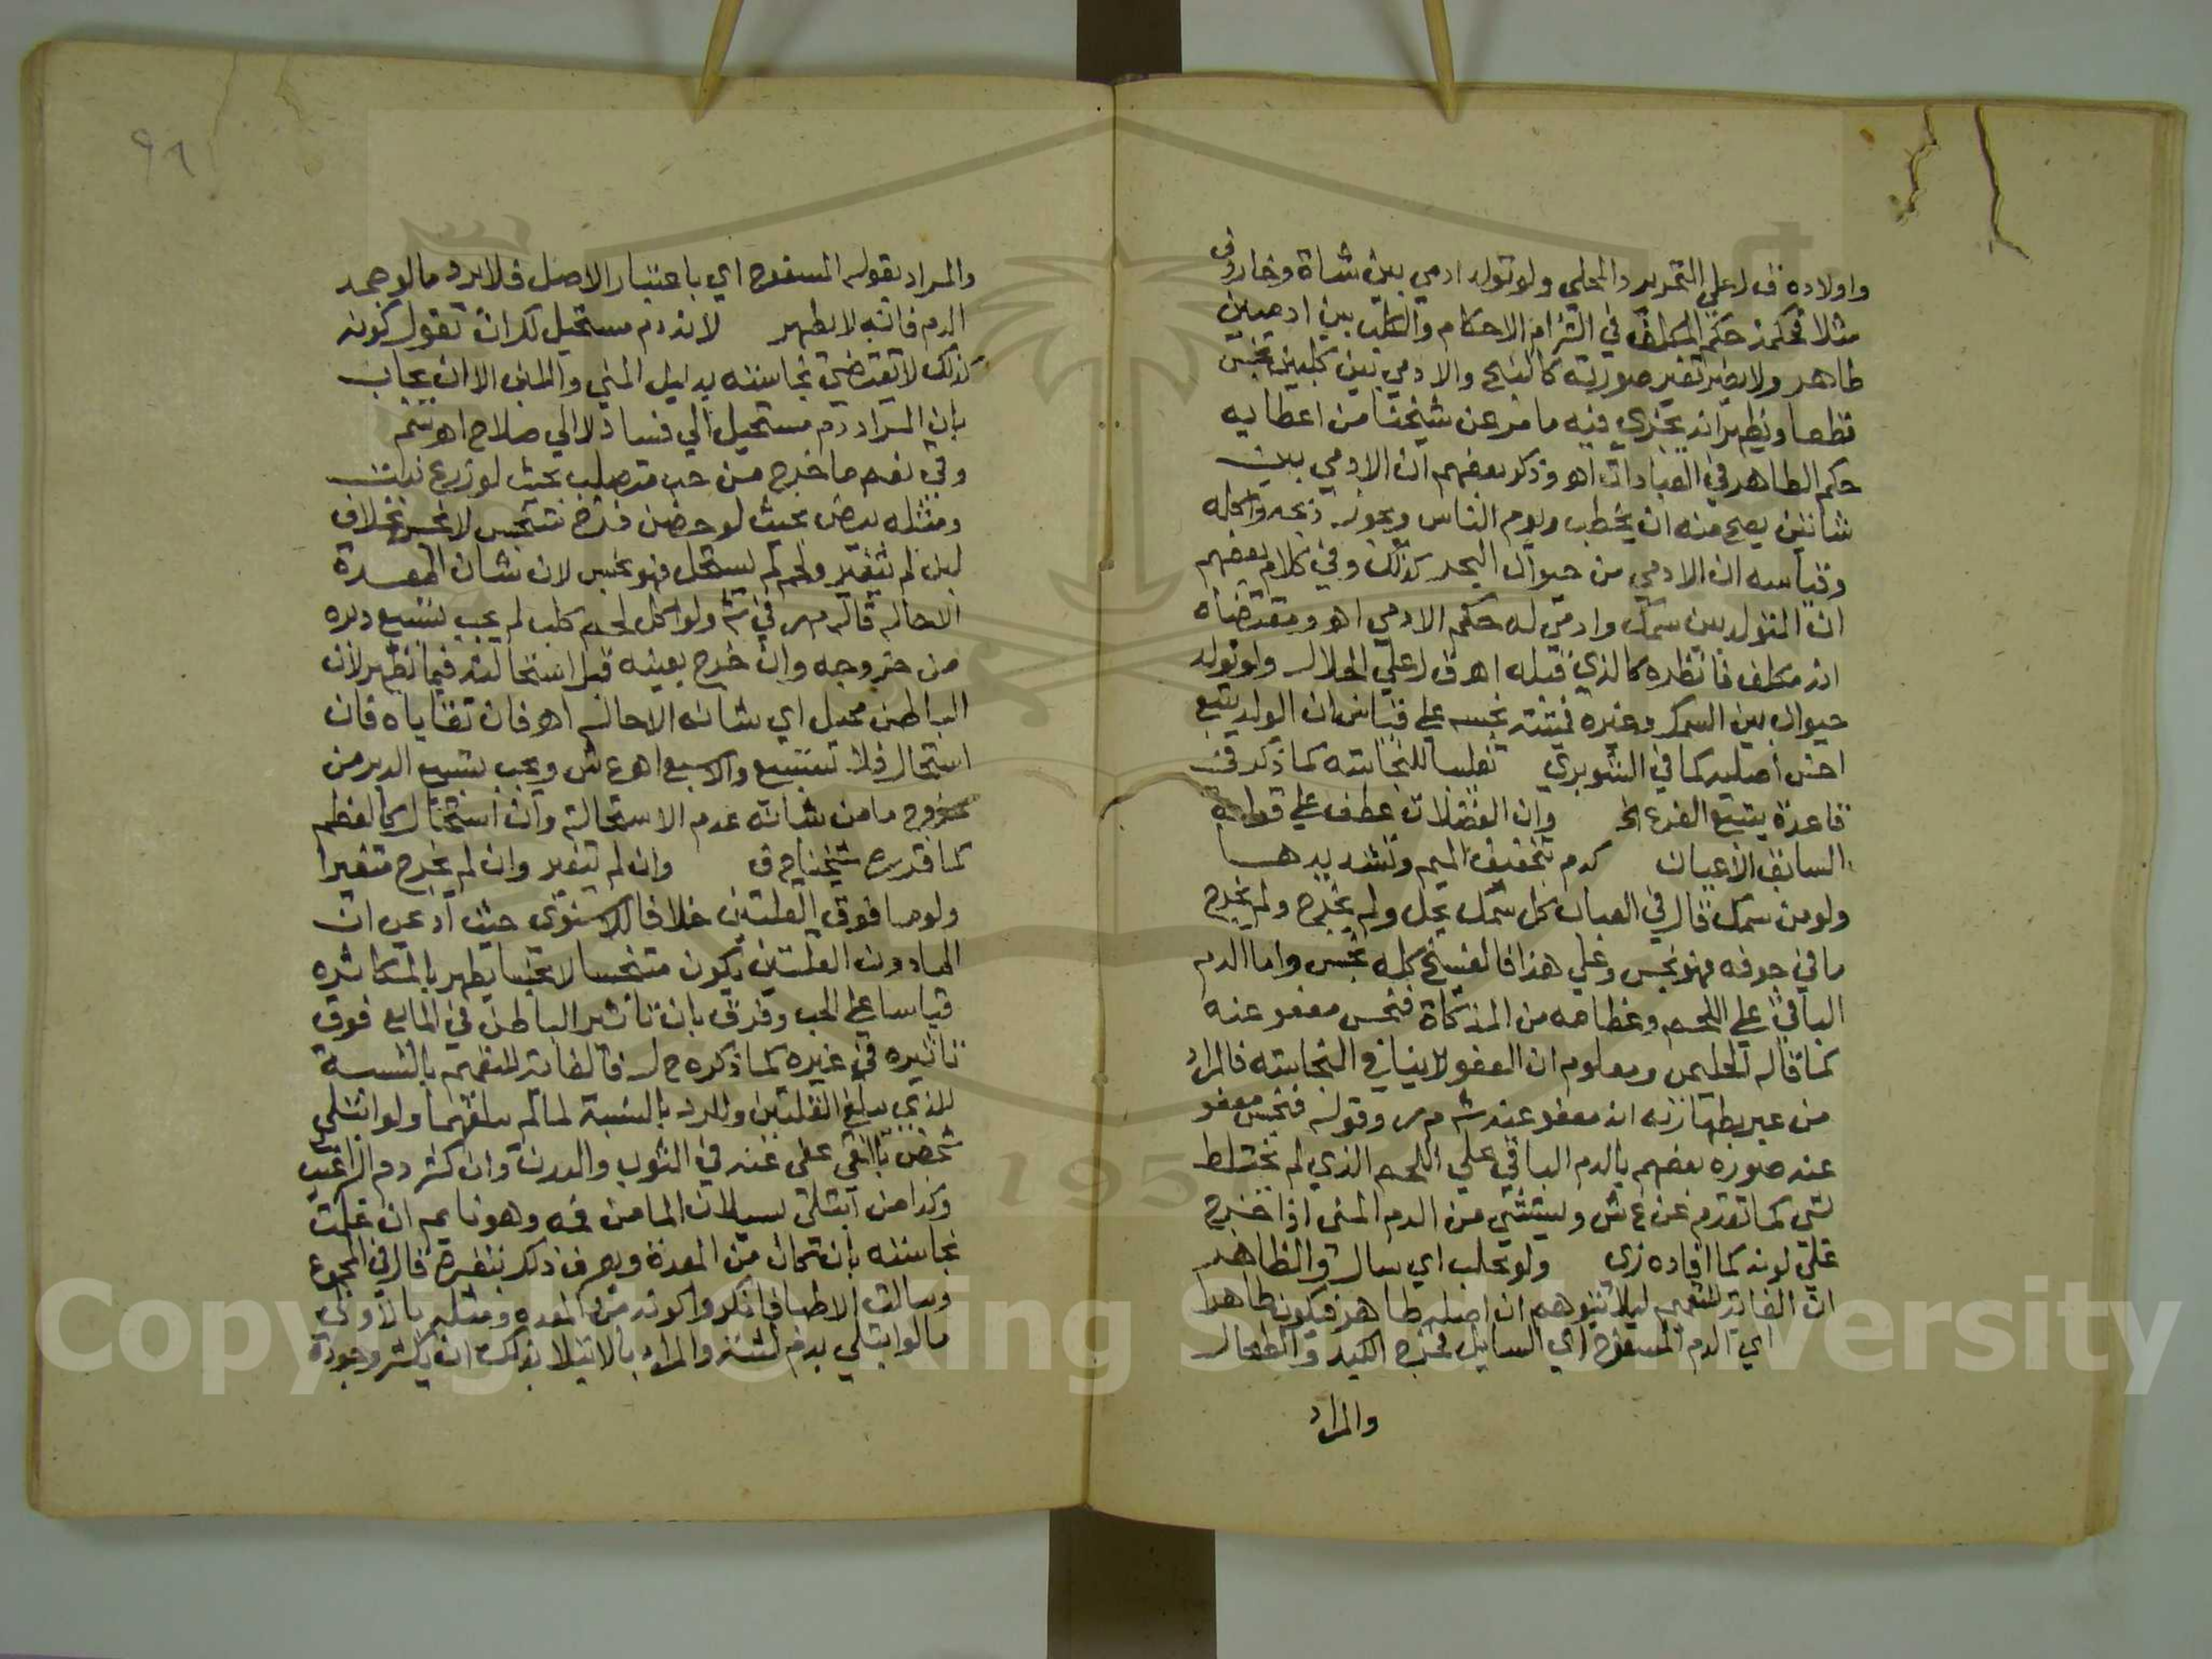 واولاده ق ل علي التحرير والمحلي ولو تولد ادمي بين شاة وخاروف
مثلا فحكمه حكم المكلف في التزام الاحكام والكلب بين ادميين
طاهر ولا يضر تغير صورته كالمسخ والادمي بين كلبين نجس
قطعا ويظهر انه يجري فيه ما مر عن شيخنا من اعطايه
حكم الطاهر في العبادات اهو وذكر بعضهم ان الادمي بين
شاتين يصح منه ان يخطب ويوم الناس ويجوز ذبحه واكله
وقياسه ان الادمي من حيوان البحر كذلك وفي كلام بعضهم
ان المتولد بين سمك وادمي له حكم الادمي اهو ومقتضاه
انه مكلف فانظره كالذي قبله اهق ل علي الجلال ولو تولد
حيوان بين السمك وغيره فميتته نجسه علي قياس ان الولد يتبع
اخس اصليه كما في الشوبري تغليبا للنجاسته كما ذكر في
قاعدة يتبع الفرع الخ وان الفضلات عطف علي قوله
السابق الاعيان كدم بتخفيف الميم وتشديدها
ولو من سمك قال في العباب كل سمك يحل ولم يخرج
ما في جوفه فهو نجس وعلي هذا فالفسيخ كله نجس واما الدم
الباقي علي اللحم وعظامه من المذكاة فنجس معفو عنه
كما قاله الحليمي ومعلوم ان العفو لا ينافي النجاسته فالمراد
من عبر بطهارته انه معفو عنه ش م ر وقوله فنجس معفو
عنه صوره بعضهم بالدم الباقي علي اللحم الذي لم يختلط
بشي كما تقدم عن ع ش ويستثني من الدم المني اذا خرج
علي لونه كما افاده زي ولو تحلب اي سال والظاهر
ان الغاية للتعميم ليلا يتوهم ان اصله طاهر فيكون طاهرا
اي الدم المسفوح اي السايل فخرج الكبد والطحال
والمراد
والمراد بقوله المسفوح اي باعتبار الاصل فلا يرد ما لو جمد
الدم فانه لا يطهر لانه دم مستحيل لك ان تقول كونه
كذلك لا يقتضي نجاسته بدليل المني واللبن الا ان يجاب
بان المراد دم مستحيل الي فساد لا الي صلاح اهو سم
وقي نعم ما خرج من حب متصلب بحيث لو زرع نبت
ومثله بيض بحيث لو حضن فرخ متنجس لا نجس بخلاف
لبن لم يتغير ولحم لم يستحل فهو نجس لان شان المعدة
الاحالة قاله م ر في ش ولو اكل لحم كلب لم يجب تسبيع دبره
من خروجه وان خرج بعينه قبل استحالته فيما يظهر لان
الباطن محيل اي شانه الاحالة اهو فان تقاياه فان
استحال فلا تسبيع والا سبع اهو ع ش ويجب تسبيع الدبر من
خروج ما من شانه عدم الاستحالة وان استحال كالعظم
كما قرره شيخنا ح ف وان لم يتغير وان لم يخرج متغيرا
ولو ما فوق القلتين خلافا للاسنوي حيث ادعي ان
الما دون القلتين يكون متنجسا لا نجسا يطهر بالمكاثره
قياسا علي الحب وفرق بان تاثير الباطن في المايع فوق
تاثيره في غيره كما ذكره ح ل فالغاية للتعميم بالنسبة
للذي يبلغ القلتين وللرد بالنسبة لما لم يبلغهما ولو ابتلي
شخص بالقي عفي عنه في الثوب والبدن وان كثر دم البراغيث
وكذا من ابتلي بسيلان الما من فمه وهو نايم ان علمت
نجاسته بان كان من المعدة ويعرف ذلك بتغيره قال في المجموع
وسالت الاطبا فانكروا كونه من المعده ومثله بالاولي
ما لو ابتلي بدم لثته والمراد بالابتلا بذلك ان يكثر وجوده